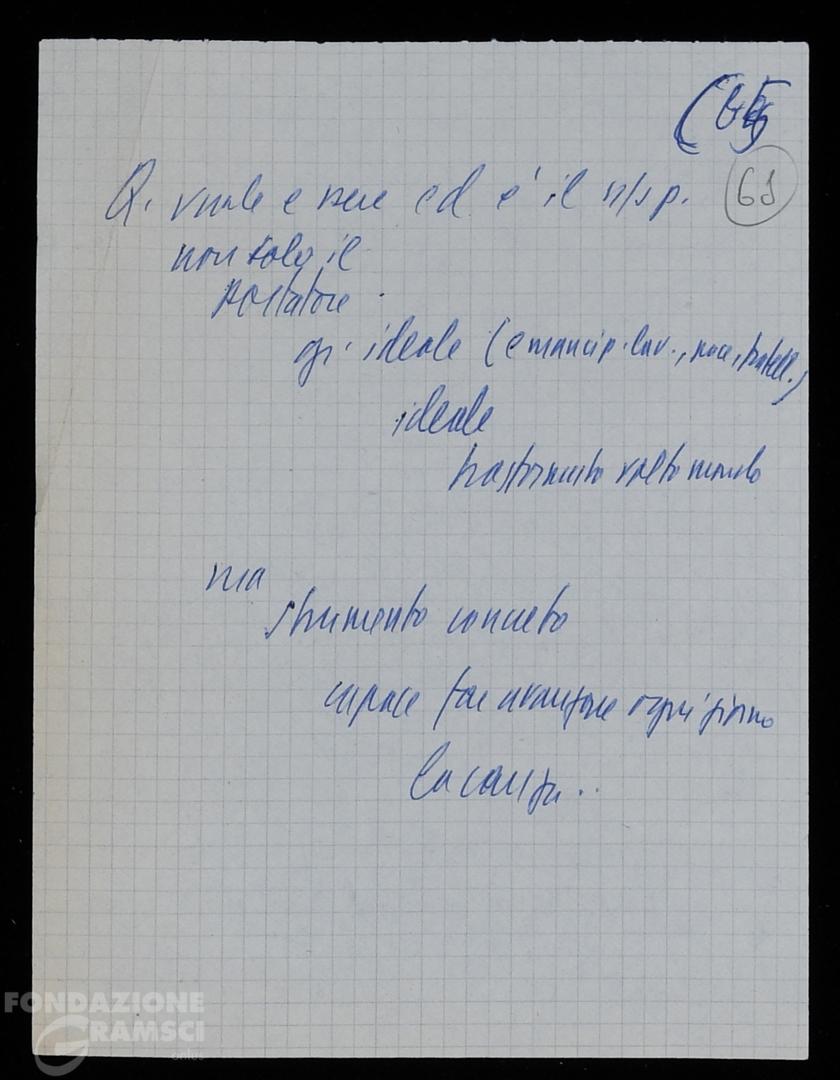 61
Q. vuole e deve ed è il n/s p.
non solo il
portatore
gr. ideale (emancip. lav., pace, fratell.)
ideale
trasformato volto mondo
ma
strumento concreto
capace far avanzare ogni giorno
la causa..
FONDAZIONE
GRAMSCI
onlus